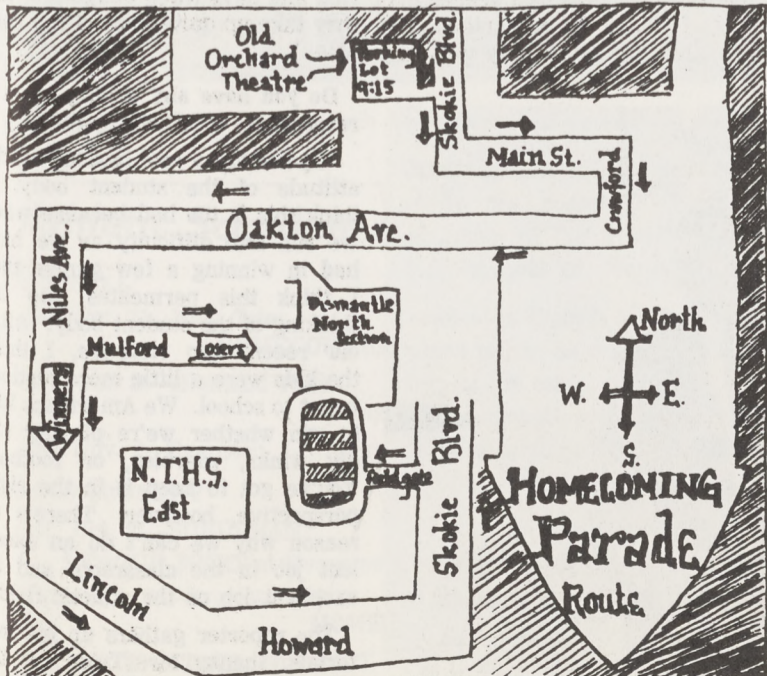 Old
Orchard
Theatre
Parking
Lot
9:15
Skokie Blvd.
Main St.
Crawford
Oakton Ave.
Niles Ave.
Dismantle
North
Section
Mulford
Losers
Winners
North
W.
E.
S.
N.T.H.S.
East
Skokie Blvd.
Lincoln
Howard
HOMECOMING
Parade
Route